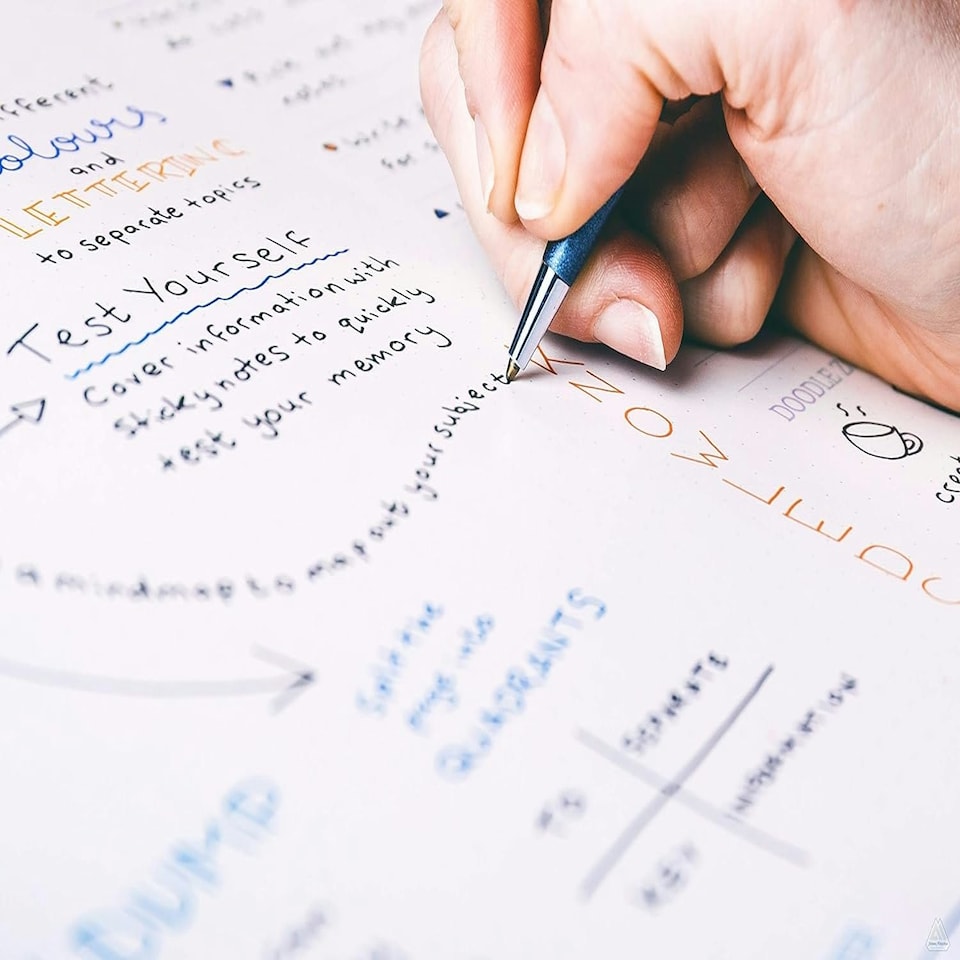 different
colours
and
LETTERING
to separate topics
Test Yourself
Cover information with
sticky notes to quickly
test your memory
a mindmap to map out your subject
KNOWLEDG
DOODLEZ
Split the
page into
QUADRANTS
TO
SEPARATE
KEY
INFORMATION
DUMP